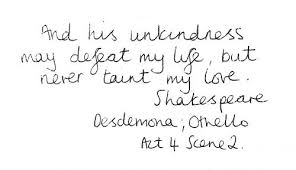 And his unkindness
may defeat my life, but
never taint my love.
Shakespeare
Desdemona, Othello
Act 4 Scene 2.